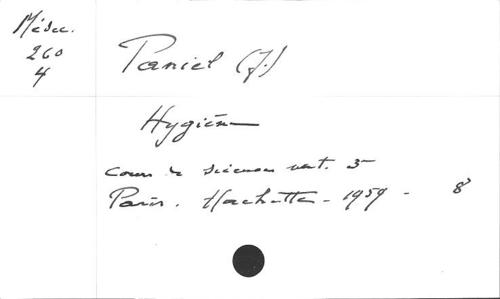 Médec.
260
4
Paniel (J.)
Hygiène
Cours de sciences nat. 5
Paris. Hachette - 1959 - 8°